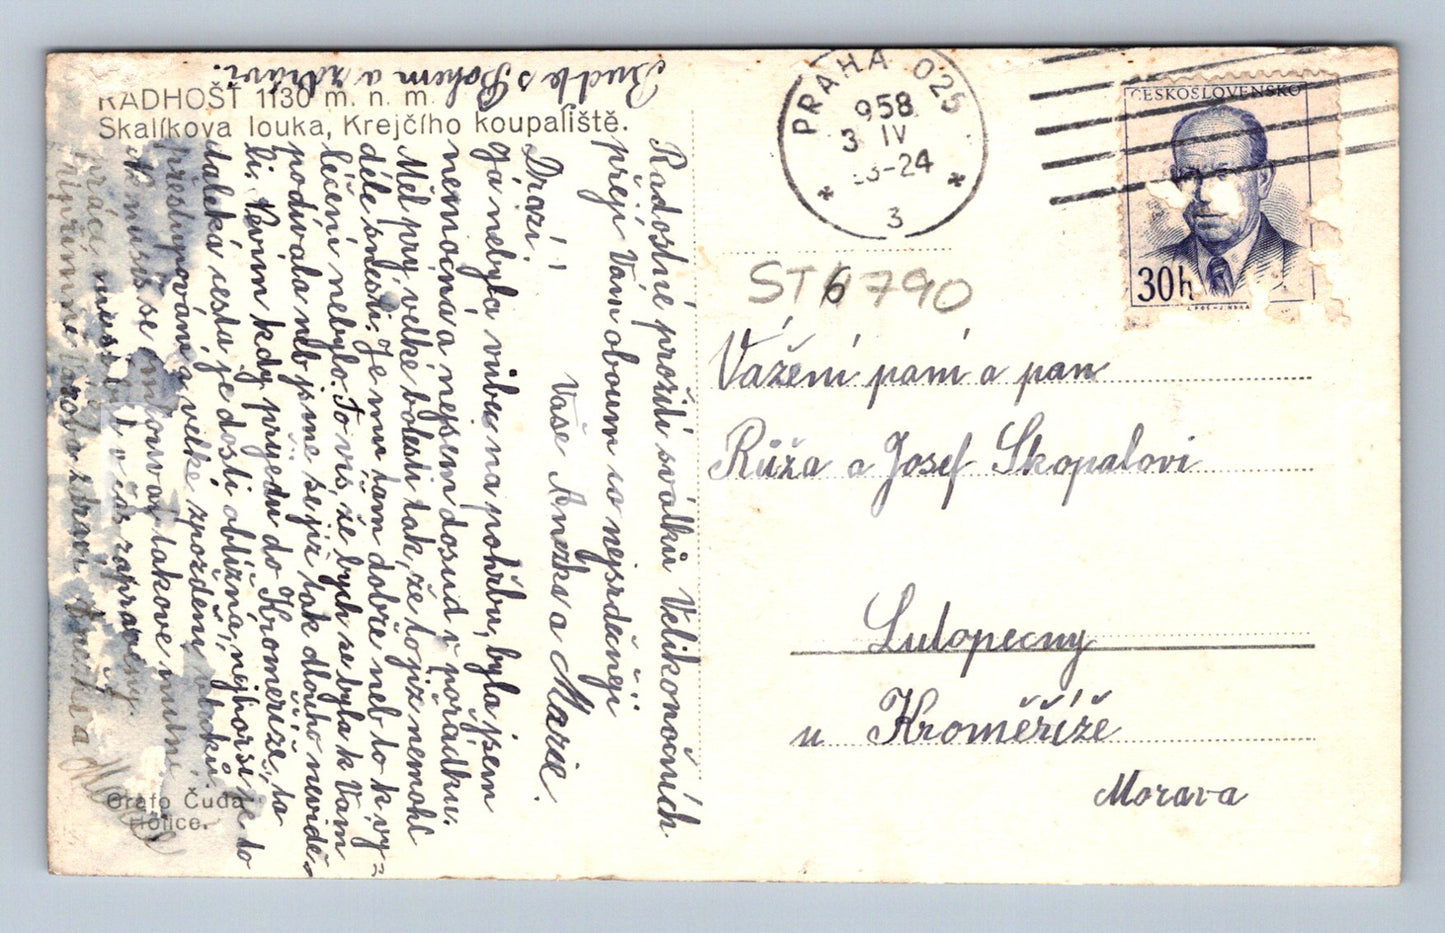 RADHOŠŤ 1130 m. n. m.
Skalíkova louka, Krejčího koupaliště.
Buďte s Bohem a zdrávi.
Radostné prožití svátků Velikonočních
přeji Vám oboum co nejsrdečněji
Vaše Anežka a Marie.
Drazí,
Já nebyla vůbec na pohřbu, byla jsem
nemocná a nejsem dosud v pořádku.
Měl prý velké bolesti tak, že to již nemohl
déle snésti. Je mu tam dobře neb to k vy=
léčení nebylo. To víš, že bych se byla k Vám
podívala neb jsme se již tak dlouho nevidě=
li. Vím kdy přijedu do Kroměříže, ta
daleká cestu je dosti obtížná, nejhorší je to
přestupování a velké zpoždění vlaků
No musíš se takové nutné
práci
zdraví Anežka a
Grafo Čuda
Hořice.
PRAHA 025
958
3 IV
3-24
3
ČESKOSLOVENSKO
30h
ST 6790
Vážení paní a pan
Růža a Josef Skopalovi
Lutopecny
u Kroměříže
Morava